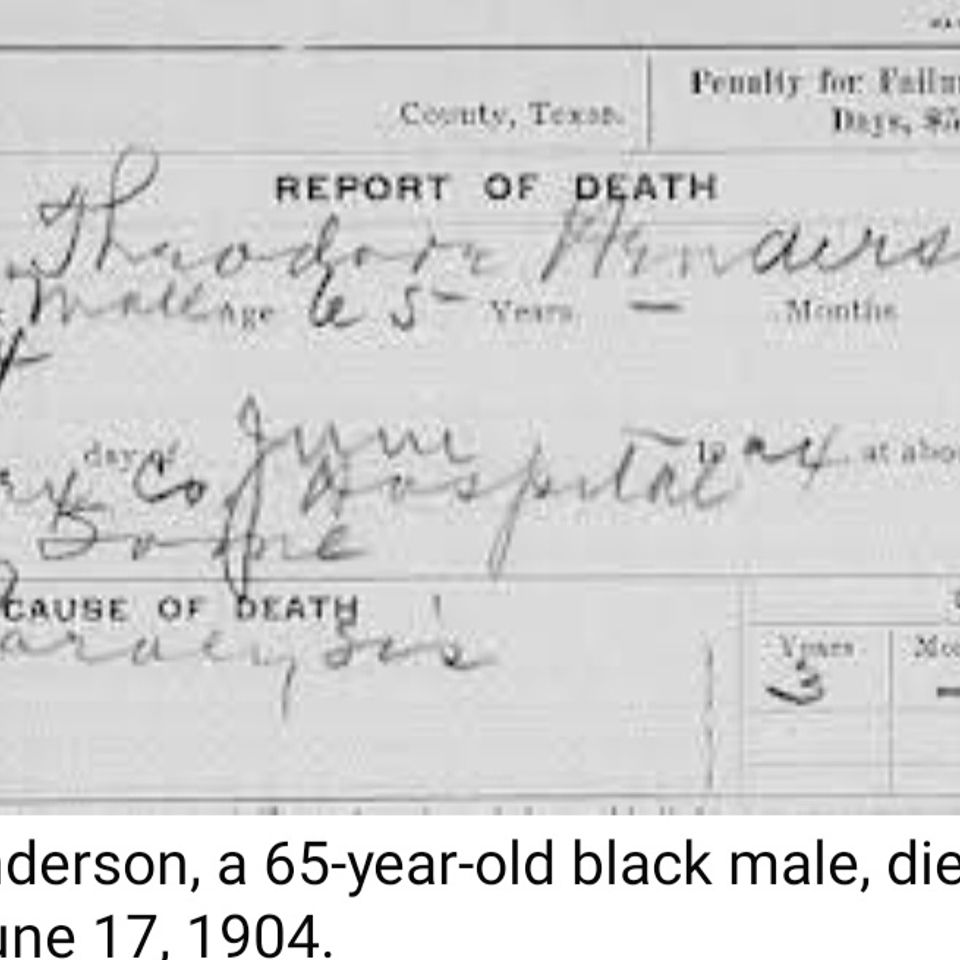 County, Texas.
Penalty for Failu
Days, $5
REPORT OF DEATH
Theodore Henders
Male Age 65 Years — Months
day of June 1904 at abo
Co Hospital
CAUSE OF DEATH
Paralysis
Years Mo
3 —
nderson, a 65-year-old black male, die
une 17, 1904.